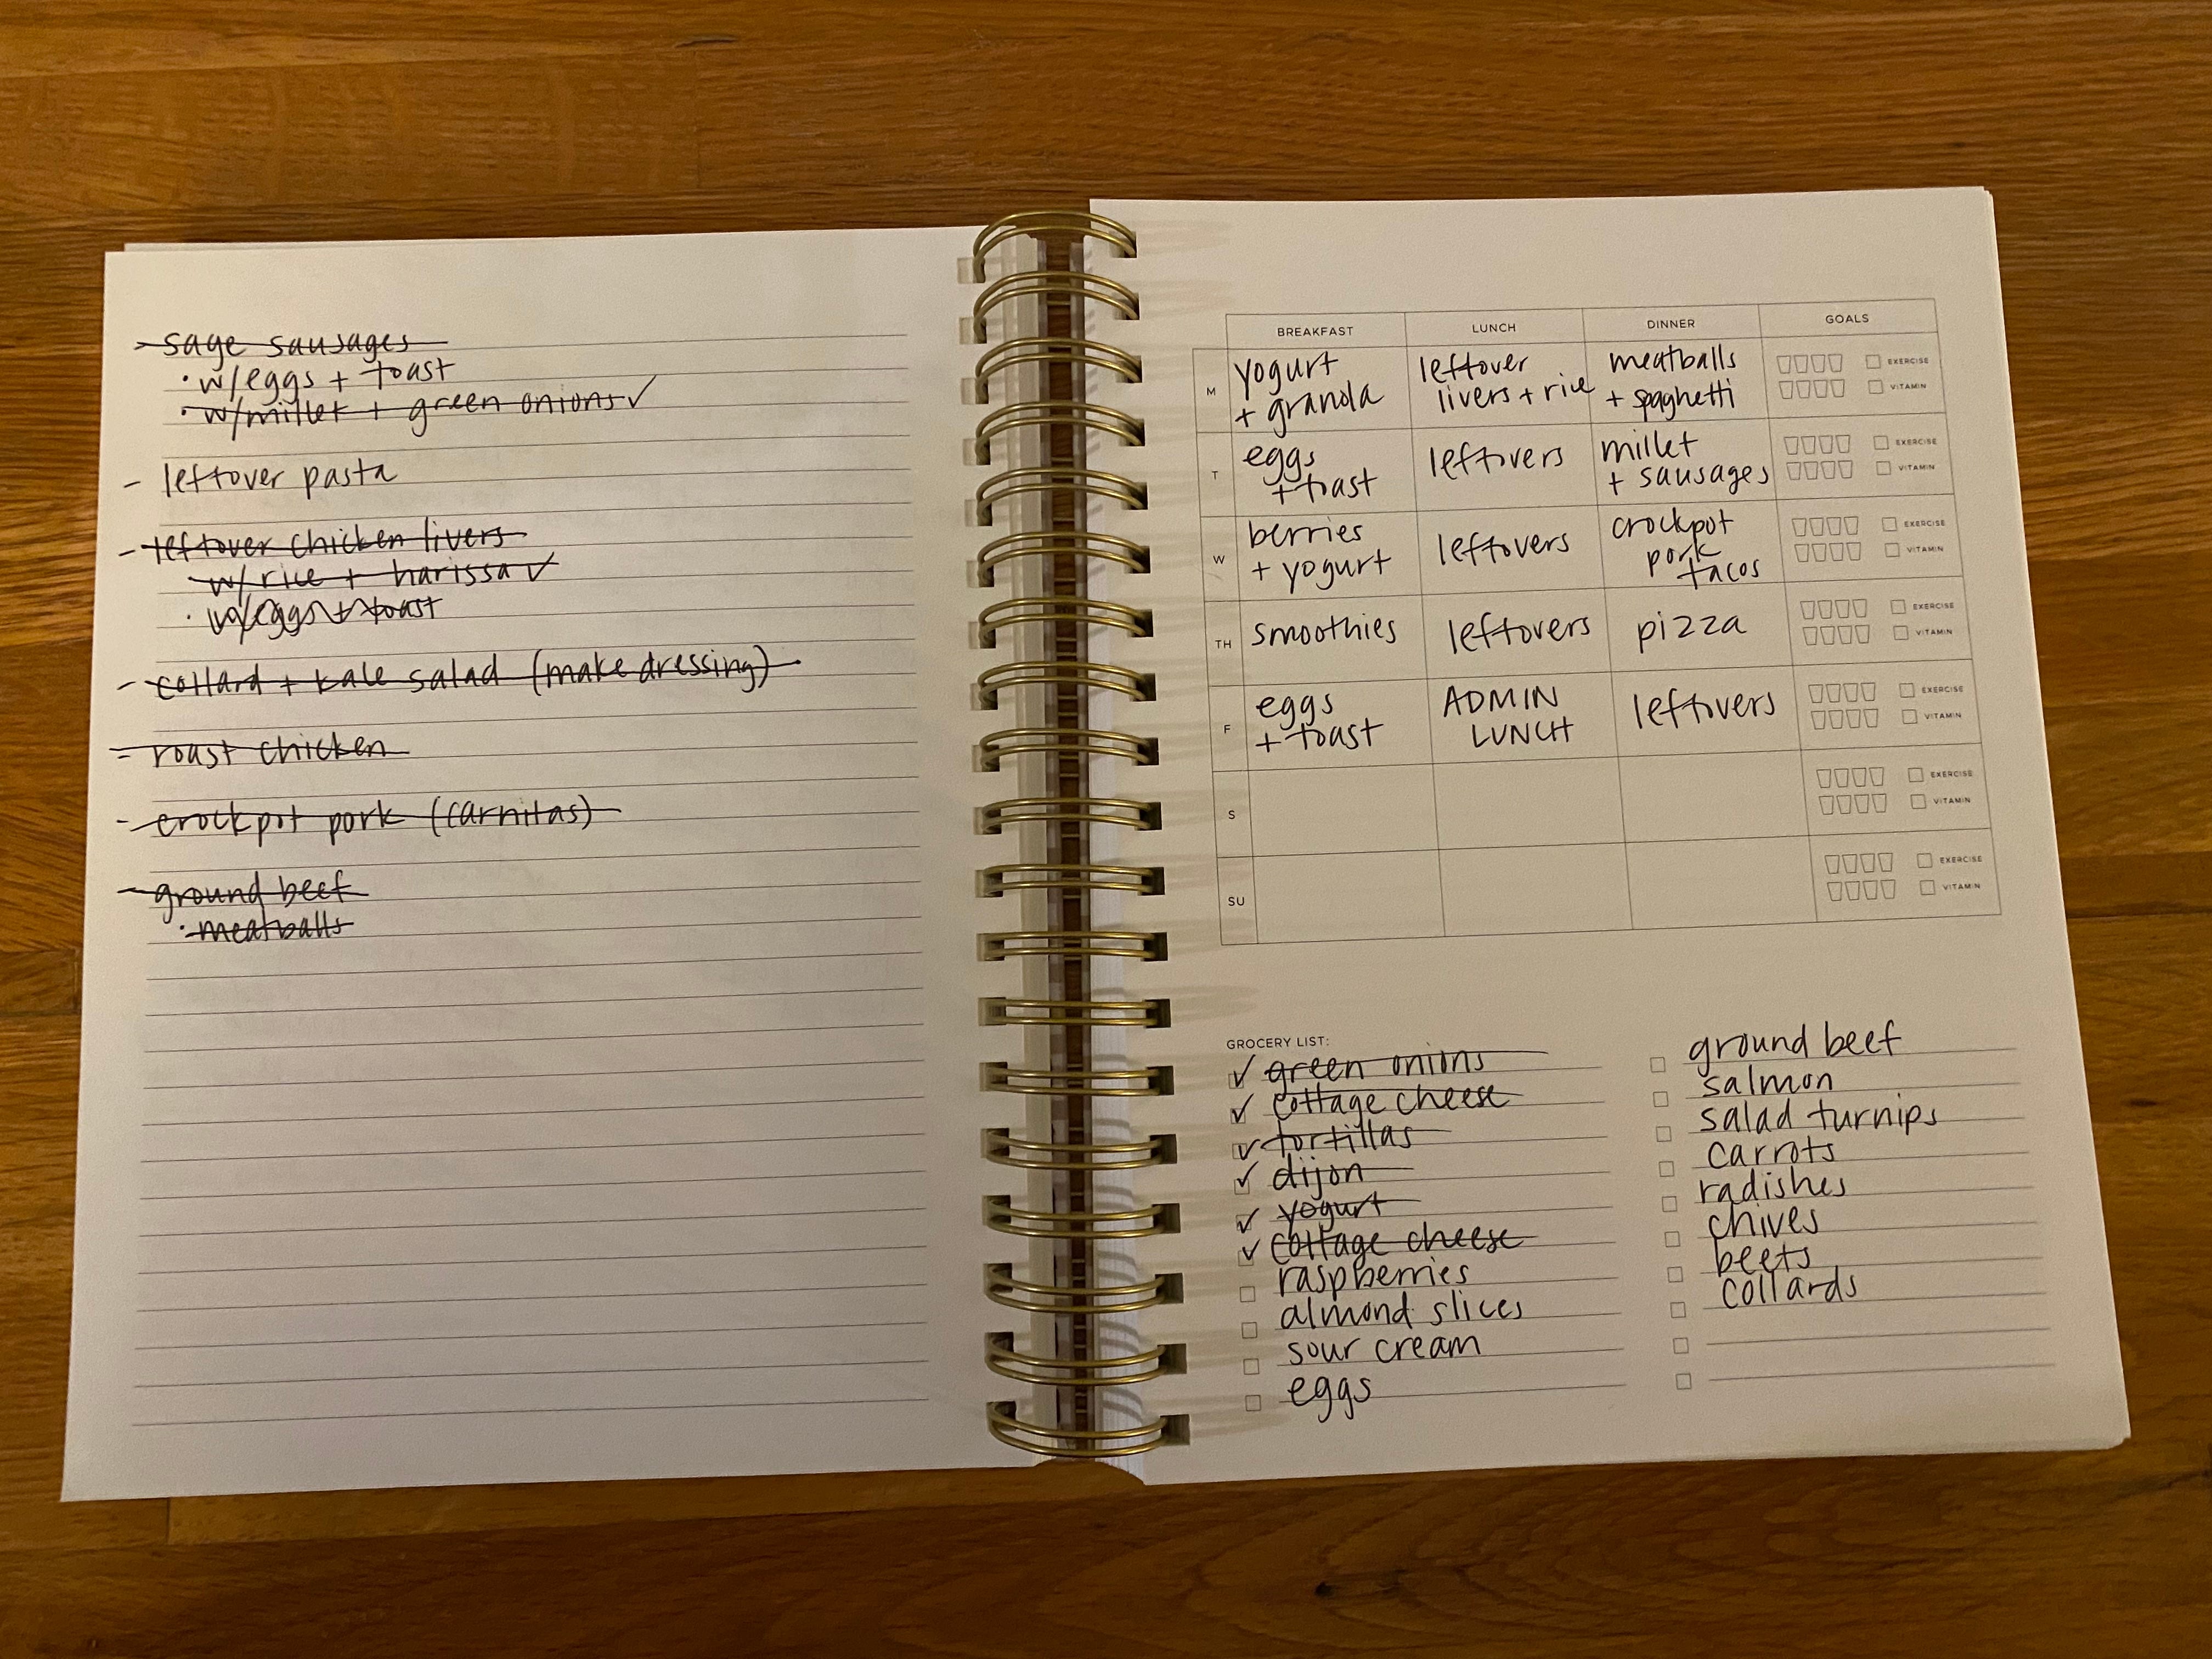 - sage sausages
· w/eggs + toast
· w/millet + green onions ✓
- leftover pasta
- leftover chicken livers
w/ rice + harissa ✓
· w/eggs + toast
- collard + kale salad (make dressing)
- roast chicken
- crockpot pork (carnitas)
- ground beef
· meatballs
BREAKFAST LUNCH DINNER GOALS
M
yogurt
+ granola
leftover
livers + rice
meatballs
+ spaghetti
EXERCISE
VITAMIN
T
eggs
+ toast
leftovers
millet
+ sausages
EXERCISE
VITAMIN
W
berries
+ yogurt
leftovers
crockpot
pork
tacos
EXERCISE
VITAMIN
TH
smoothies
leftovers
pizza
EXERCISE
VITAMIN
F
eggs
+ toast
ADMIN
LUNCH
leftovers
EXERCISE
VITAMIN
S
EXERCISE
VITAMIN
SU
EXERCISE
VITAMIN
GROCERY LIST:
✓ green onions
✓ cottage cheese
✓ tortillas
✓ dijon
✓ yogurt
✓ cottage cheese
raspberries
almond slices
sour cream
eggs
ground beef
salmon
salad turnips
carrots
radishes
chives
beets
collards